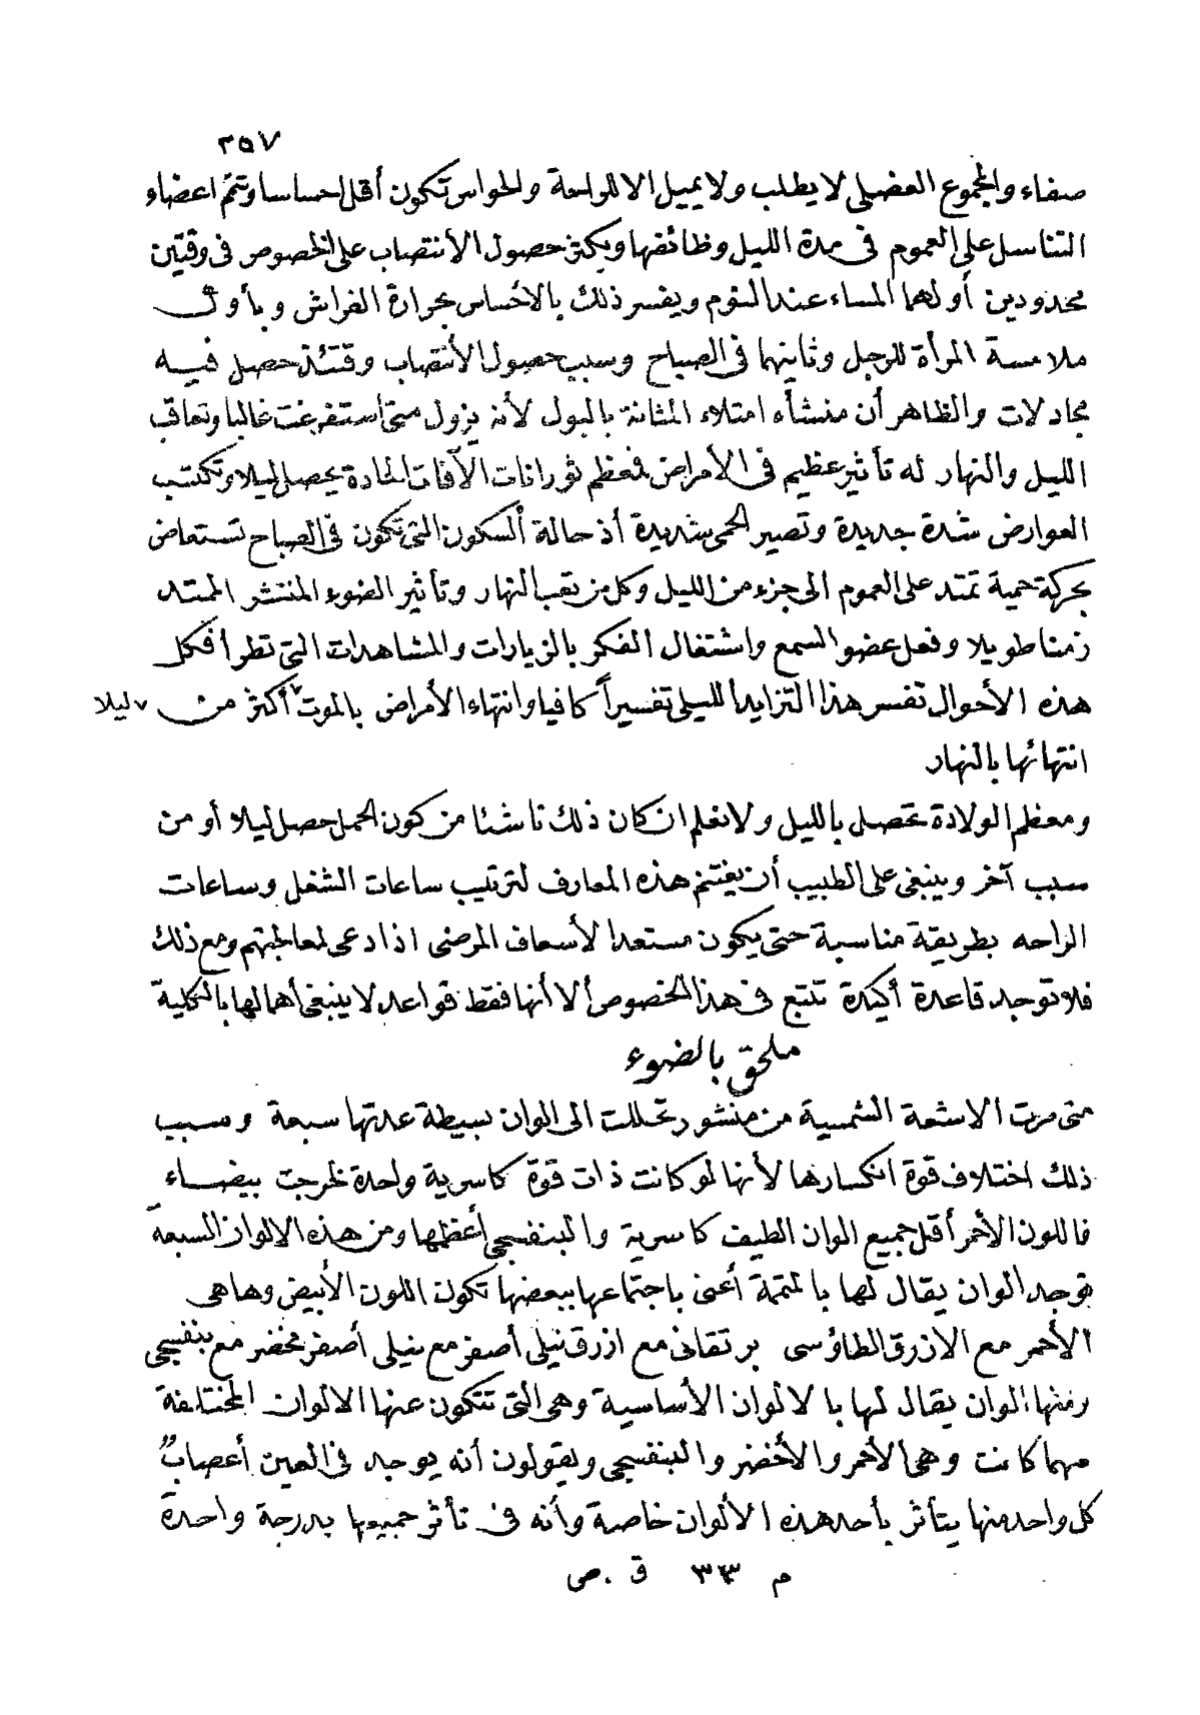 ٢٥٧
صفاء والمجموع العضلى لا يطلب ولا يميل الا للراحة والحواس تكون أقل احساسا وتتم اعضاء
التناسل على العموم فى مدة الليل وظائفها ويكثر حصول الأنتصاب على الخصوص فى وقتين
محدودين أولهما المساء عند النوم ويفسر ذلك بالأحساس بحرارة الفراش وبأول
ملامسة المرأة للرجل وثانيهما فى الصباح وسبب حصول الأنتصاب وقتئذ حصل فيه
مجادلات والظاهر أن منشأه امتلاء المثانة بالبول لأنه يزول متى استفرغت غالبا وتعاقب
الليل والنهار له تأثير عظيم فى الأمراض فمعظم ثورانات الآفات الحادة يحصل ليلا وتكتسب
العوارض شدة جديدة وتصير الحمى شديدة أذ حالة السكون التى تكون فى الصباح تستعاض
بحركة حمية تمتد على العموم الى جزء من الليل وكل من تعب النهار وتأثير الضوء المنتشر الممتد
زمنا طويلا وفعل عضو السمع واشتغال الفكر بالزيارات والمشاهدات التى تطرأ فكل
هذه الأحوال تفسر هذا التزايد الليلى تفسيراً كافيا وانتهاء الأمراض بالموت ٧ أكثر من ٧ ليلا
انتهائها بالنهار
ومعظم الولادة تحصل بالليل ولا نعلم ان كان ذلك ناشئا من كون الحمل حصل ليلا أو من
سبب آخر وينبغى على الطبيب أن يغتنم هذه المعارف لترتيب ساعات الشغل وساعات
الراحه بطريقة مناسبة حتى يكون مستعدا لأسعاف المرضى اذا دعى لمعالجتهم ومع ذلك
فلا توجد قاعدة أكيدة تتبع فى هذا الخصوص ألا أنها فقط قواعد لا ينبغى أهمالها بالكلية
ملحق بالضوء
متى مرت الاشعة الشمسية من منشور تحللت الى الوان بسيطة عدتها سبعة وسبب
ذلك اختلاف قوة انكسارها لأنها لو كانت ذات قوة كاسرية واحدة لخرجت بيضاء
فاللون الأحمر أقل جميع الوان الطيف كاسرية والبنفسجى أعظمها ومن هذه الالوان السبعة
توجد الوان يقال لها بالمتممة أعنى باجتماعها ببعضها تكون اللون الأبيض وها هى
الأحمر مع الازرق الطاؤسى برتقانى مع ازرق نيلى أصفر مع نيلى أصفر مخضر مع بنفسجى
ومنها الوان يقال لها بالالوان الأساسية وهى التى تتكون عنها الالوان المختلفة
مهما كانت وهى الأحمر والأخضر والبنفسجى ويقولون أنه يوجد فى العين أعصابٌ
كل واحد منها يتأثر بأحد هذه الألوان خاصة وأنه فى تأثر جميعها بدرجة واحدة
م ٣٣ ق . ص